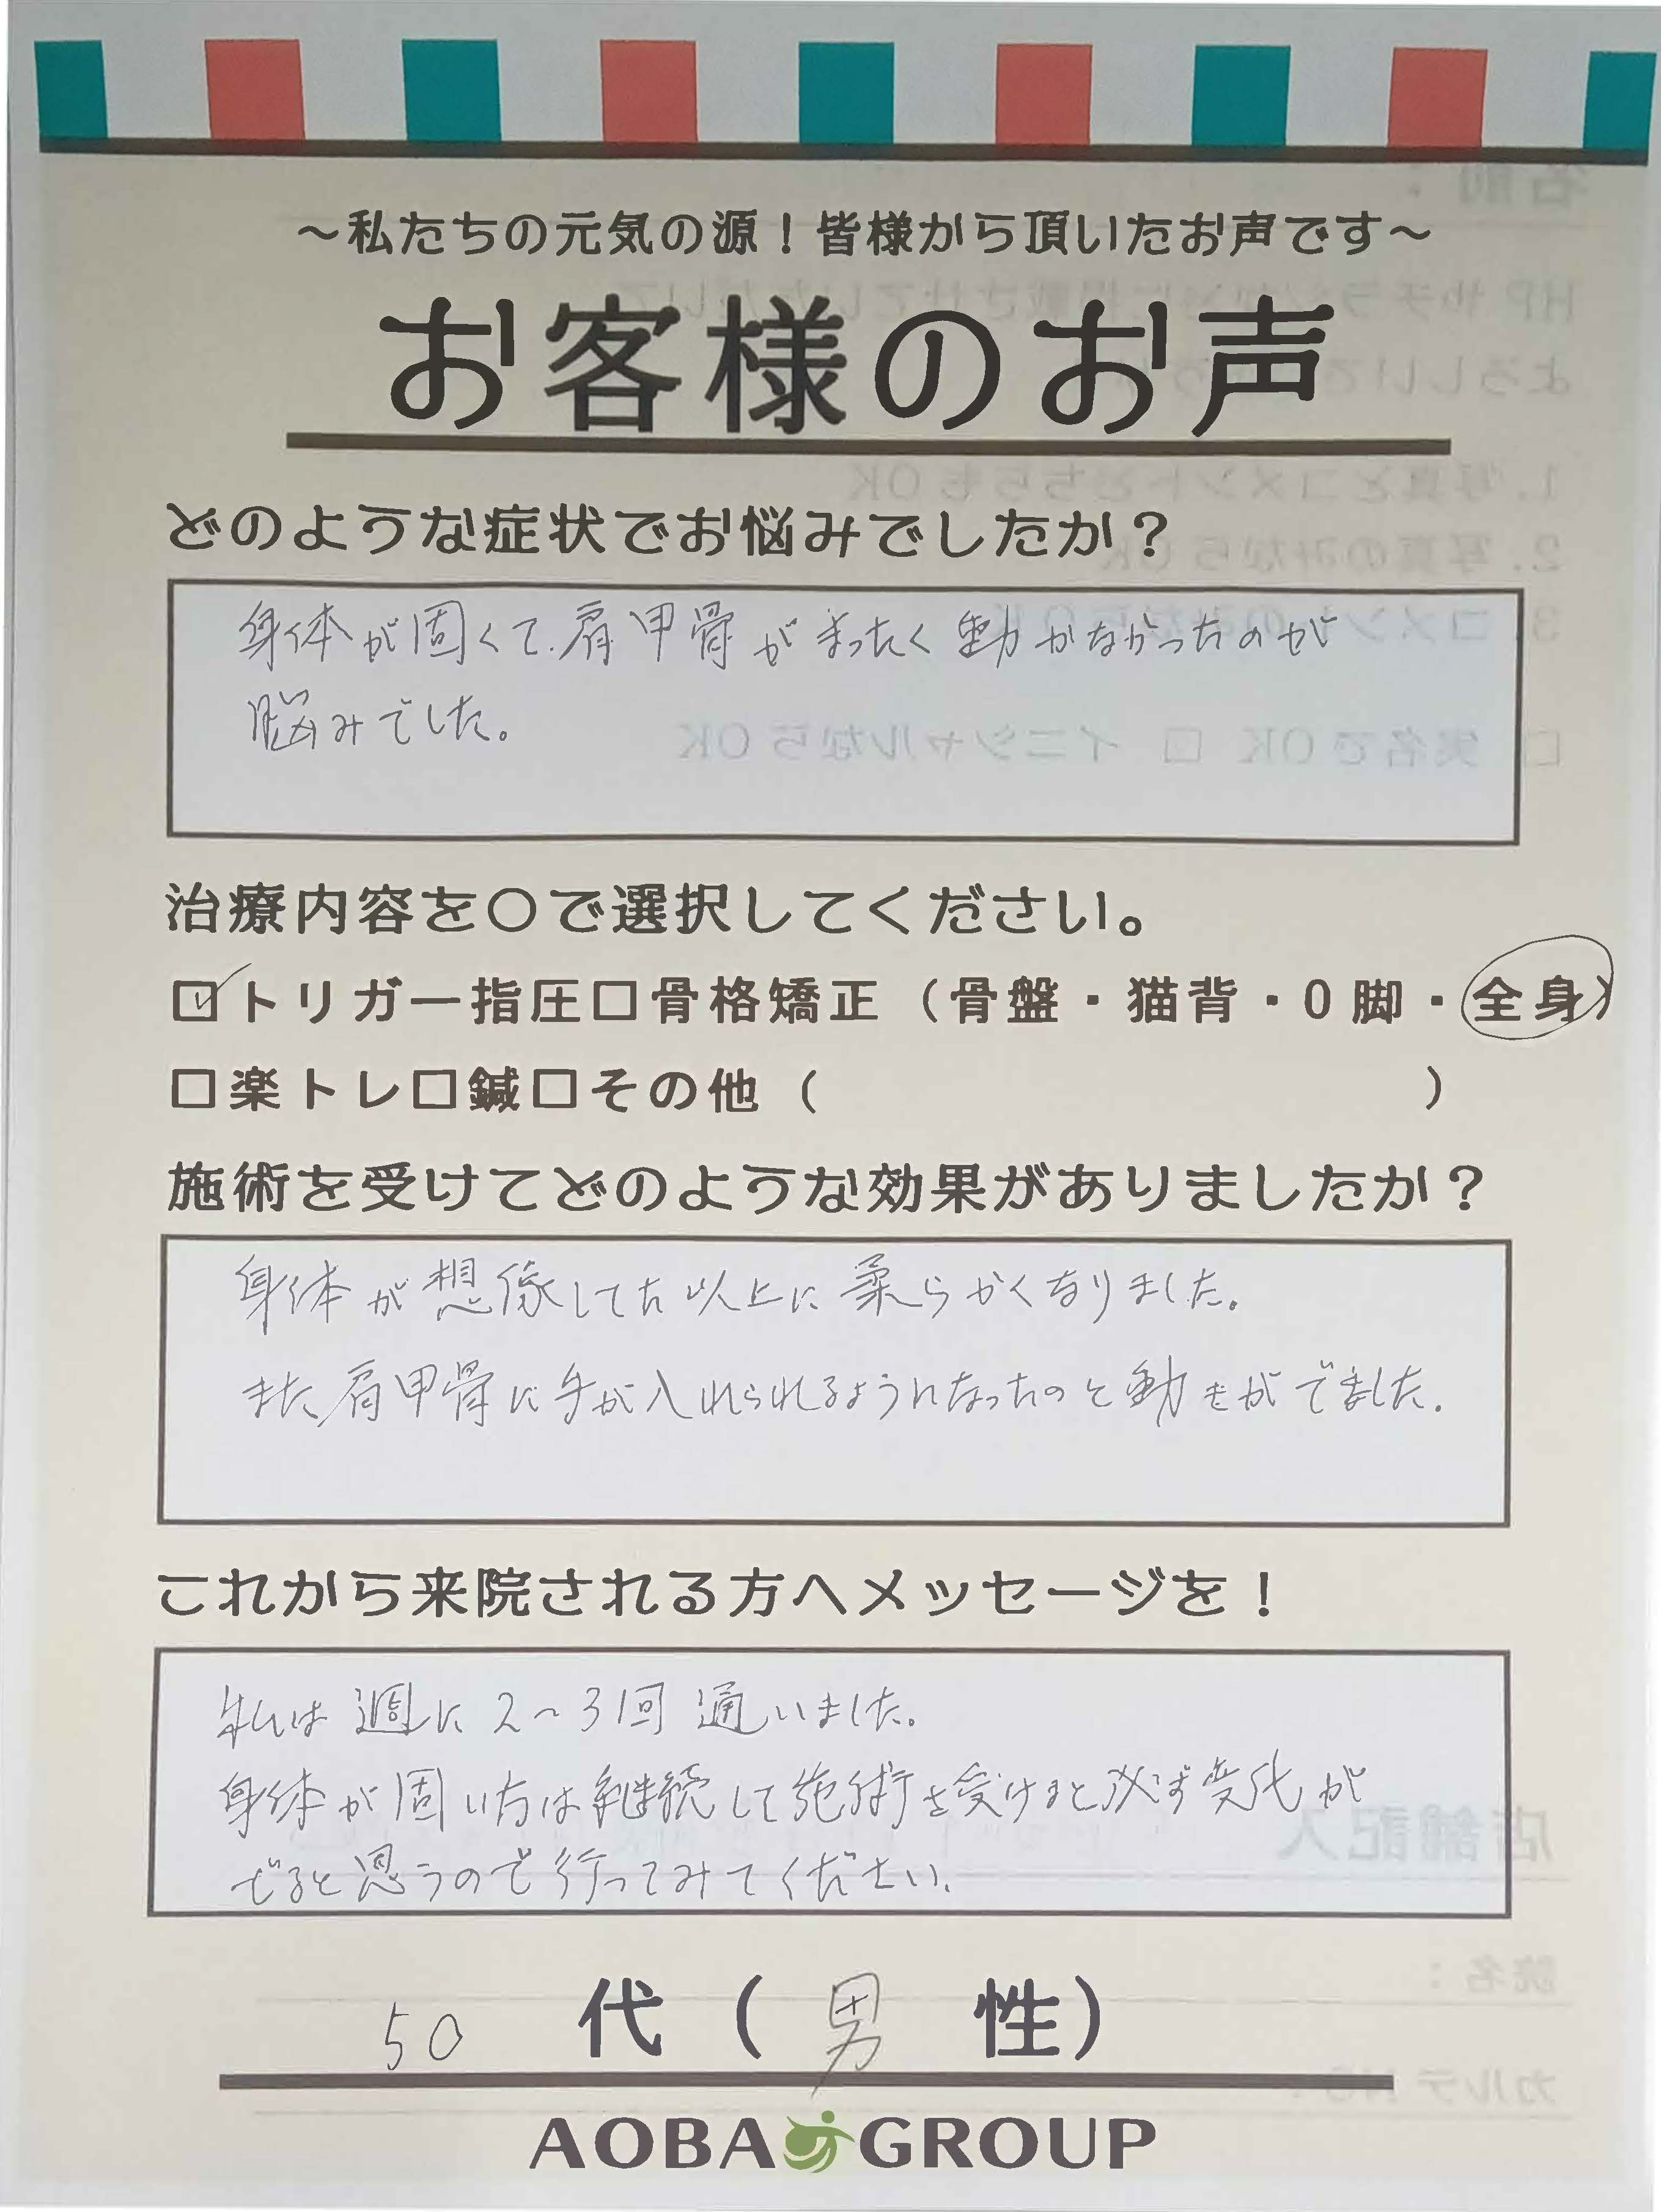 ～私たちの元気の源！皆様から頂いたお声です～
お客様のお声
どのような症状でお悩みでしたか？
身体が固くて、肩甲骨がまったく動かなかったのが
悩みでした。
治療内容を○で選択してください。
☑トリガー指圧□骨格矯正（骨盤・猫背・O脚・全身）
□楽トレ□鍼□その他（　　　　　　　　　　）
施術を受けてどのような効果がありましたか？
身体が想像してた以上に柔らかくなりました。
また肩甲骨に手が入れられるようになったのと動きがでました。
これから来院される方へメッセージを！
私は週に2～3回通いました。
身体が固い方は継続して施術を受けると必ず変化が
でると思うので行ってみてください。
50代（男性）
AOBA GROUP